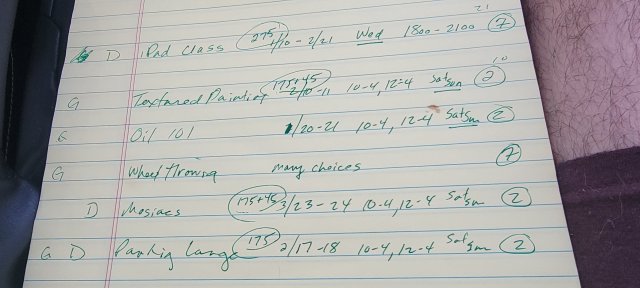 D iPad class 275 1/10 - 2/21 Wed 1800-2100 21 7
G Textured Painting 175+45 2/10-11 10-4, 12-4 Sat Sun 10 2
G Oil 101 1/20-21 10-4, 12-4 Sat Sun 2
G Wheel Throwing many choices 7
D Mosiacs 175+45 3/23-24 10-4, 12-4 Sat Sun 2
G D 175 2/17-18 10-4, 12-4 Sat Sun 2